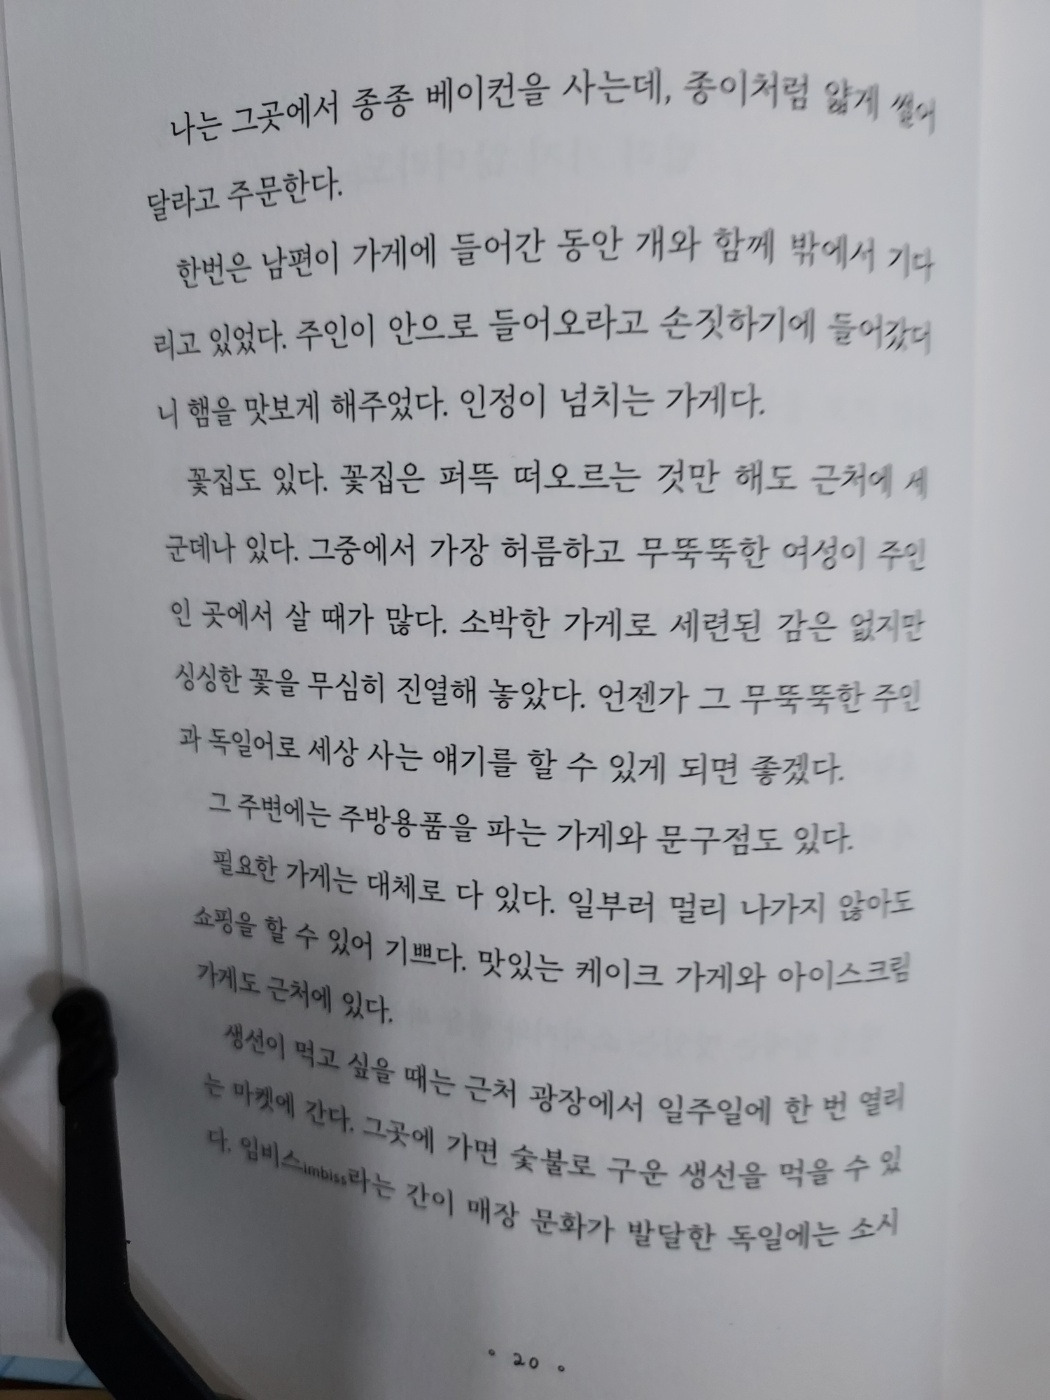 나는 그곳에서 종종 베이컨을 사는데, 종이처럼 얇게 썰어
달라고 주문한다.
한번은 남편이 가게에 들어간 동안 개와 함께 밖에서 기다
리고 있었다. 주인이 안으로 들어오라고 손짓하기에 들어갔더
니 햄을 맛보게 해주었다. 인정이 넘치는 가게다.
꽃집도 있다. 꽃집은 퍼뜩 떠오르는 것만 해도 근처에 세
군데나 있다. 그중에서 가장 허름하고 무뚝뚝한 여성이 주인
인 곳에서 살 때가 많다. 소박한 가게로 세련된 감은 없지만
싱싱한 꽃을 무심히 진열해 놓았다. 언젠가 그 무뚝뚝한 주인
과 독일어로 세상 사는 얘기를 할 수 있게 되면 좋겠다.
그 주변에는 주방용품을 파는 가게와 문구점도 있다.
필요한 가게는 대체로 다 있다. 일부러 멀리 나가지 않아도
쇼핑을 할 수 있어 기쁘다. 맛있는 케이크 가게와 아이스크림
가게도 근처에 있다.
생선이 먹고 싶을 때는 근처 광장에서 일주일에 한 번 열리
는 마켓에 간다. 그곳에 가면 숯불로 구운 생선을 먹을 수 있
다. 임비스imbiss라는 간이 매장 문화가 발달한 독일에는 소시
20